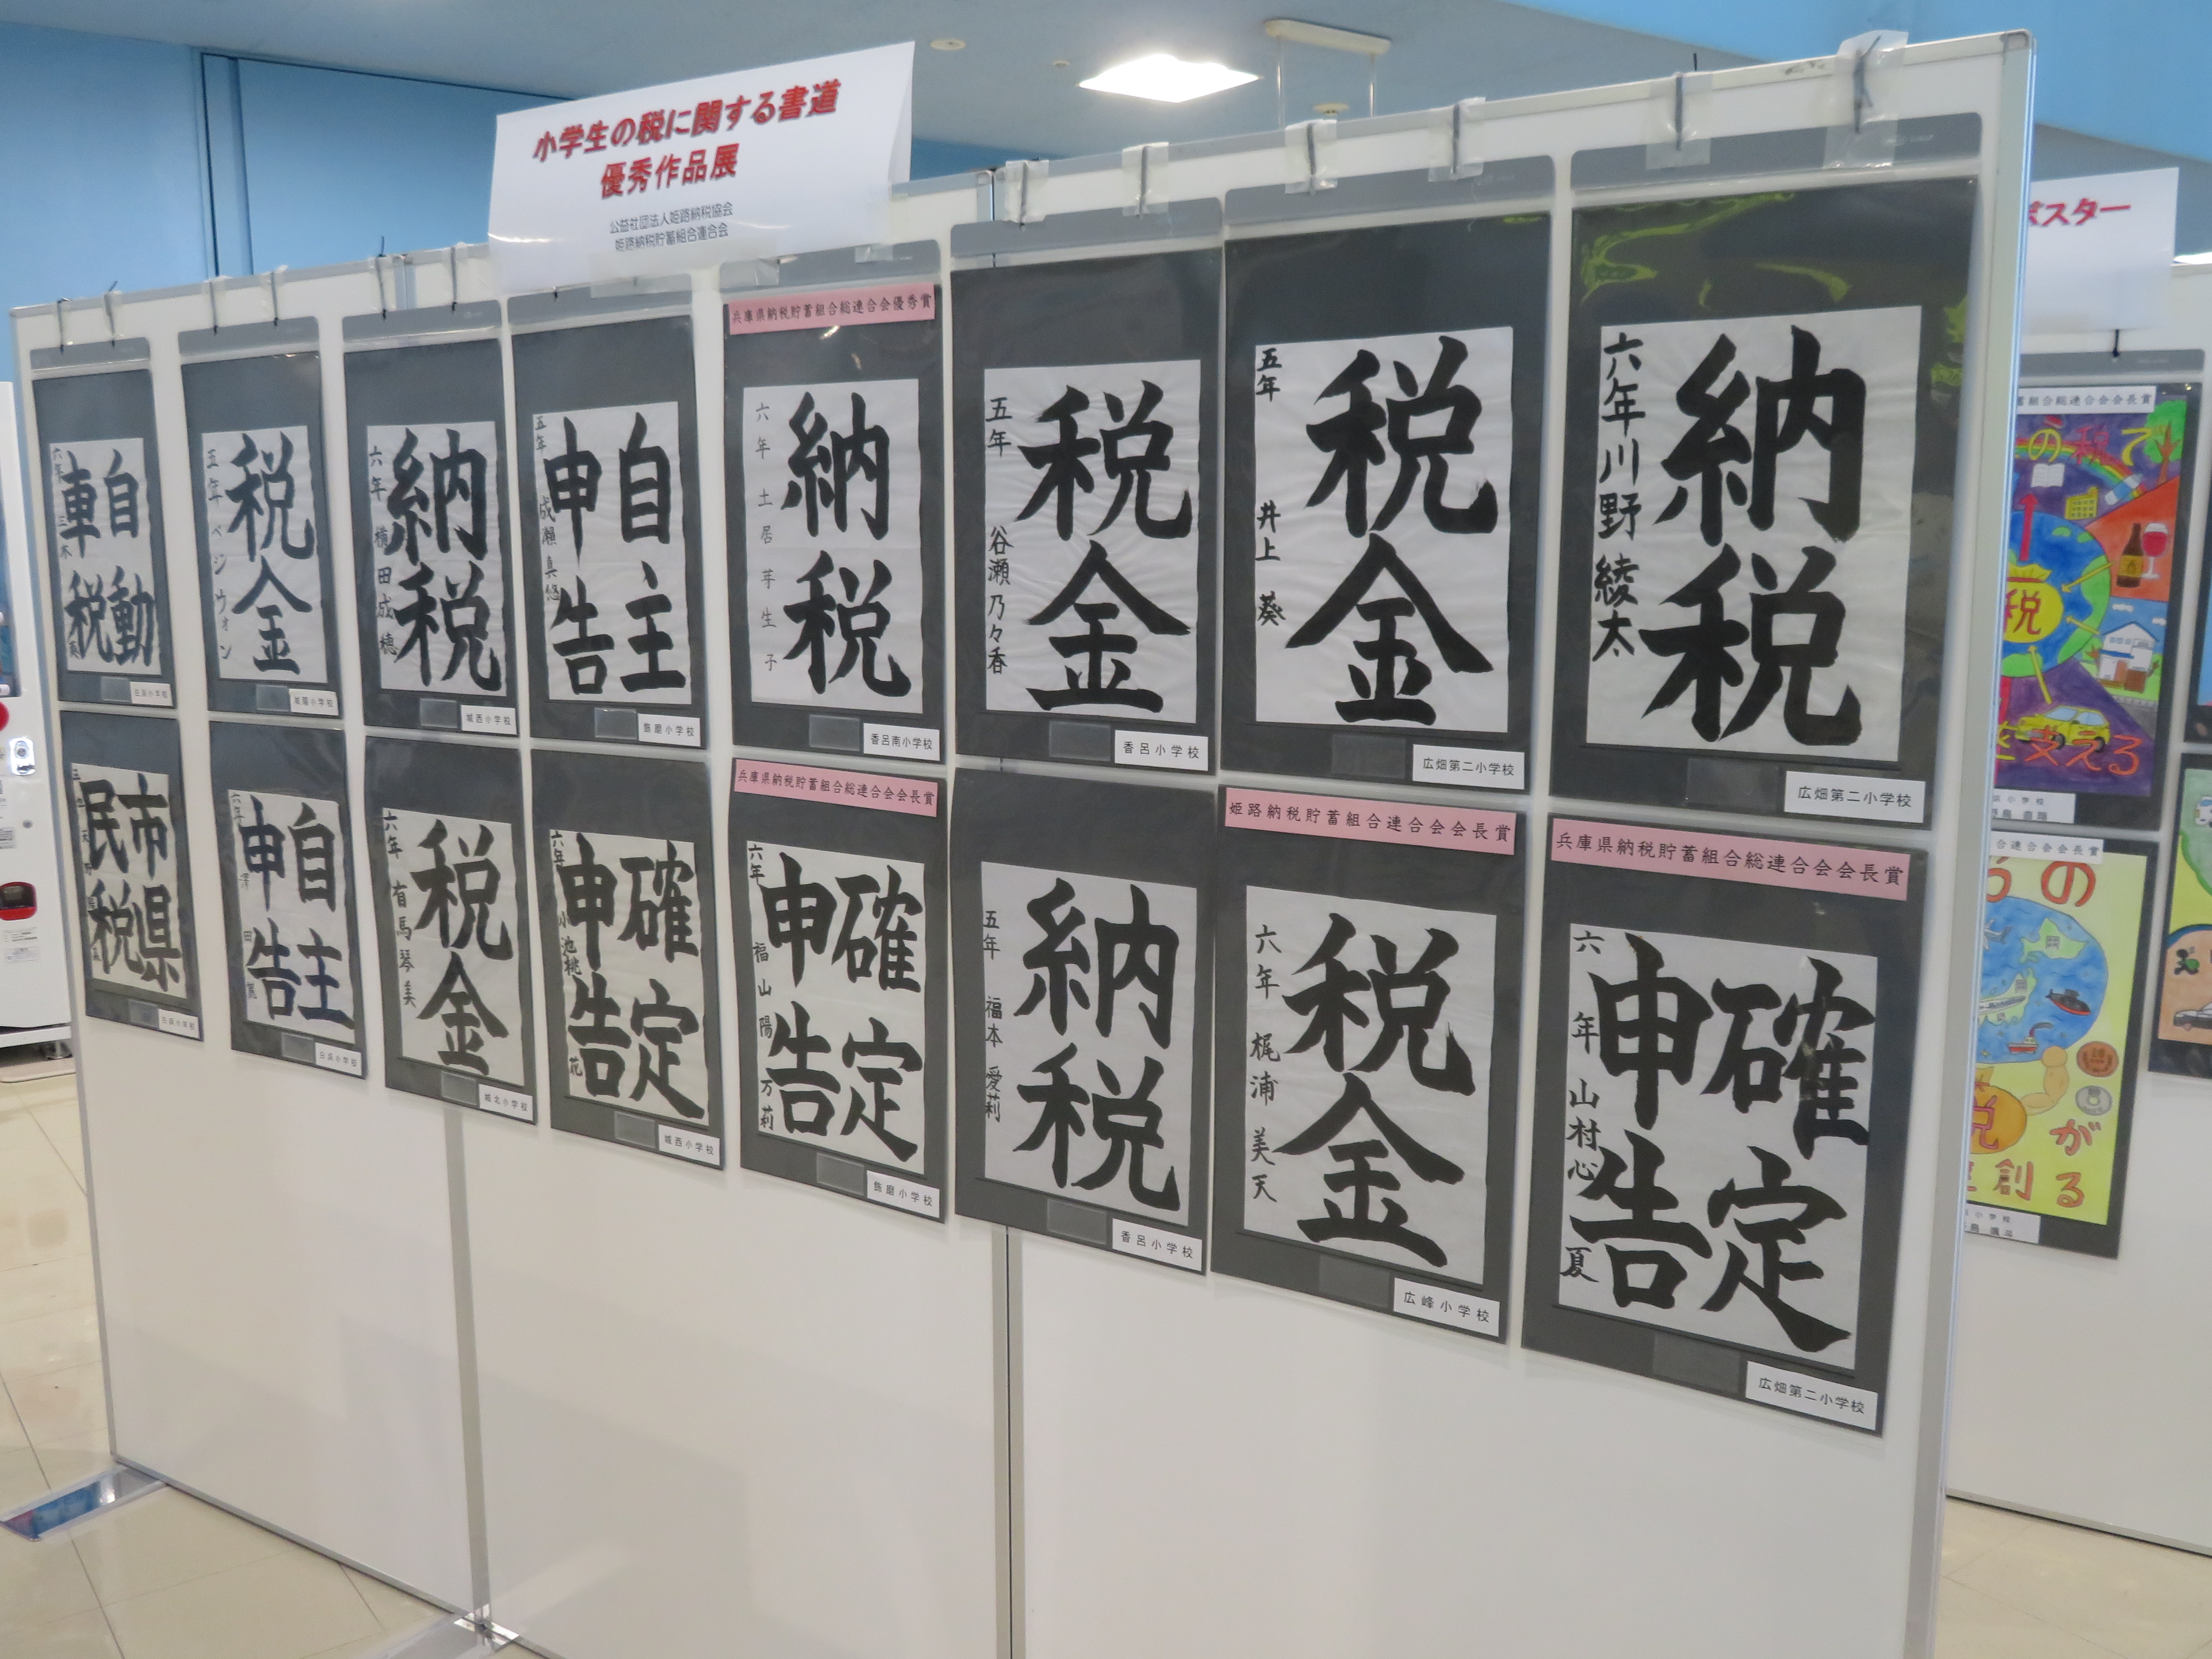 小学生の税に関する書道
優秀作品展
公益社団法人姫路納税協会
姫路納税貯蓄組合連合会
自動
車税
六年
税金
五年 ペ ジウォン
城陽小学校
納税
六年 横田成穂
城西小学校
自主
申告
五年 成瀬真悠
飾磨小学校
兵庫県納税貯蓄組合総連合会優秀賞
納税
六年 土居芽生子
香呂南小学校
税金
五年 谷瀬乃々香
香呂小学校
税金
五年 井上 葵
広畑第二小学校
納税
六年 川野 綾太
広畑第二小学校
市県
民税
白浜小学校
自主
申告
六年
白浜小学校
税金
六年 有馬琴美
城北小学校
確定
申告
六年 小池桃花
城西小学校
兵庫県納税貯蓄組合総連合会会長賞
確定
申告
六年 福山陽万莉
飾磨小学校
納税
五年 福本 愛莉
香呂小学校
姫路納税貯蓄組合連合会会長賞
税金
六年 梶浦 美天
広峰小学校
兵庫県納税貯蓄組合総連合会会長賞
確定
申告
六年 山村心夏
広畑第二小学校
ポスター
組合総連合会会長賞
の税で
税
支える
小学校
合連合会会長賞
の
税
が
創る
小学校